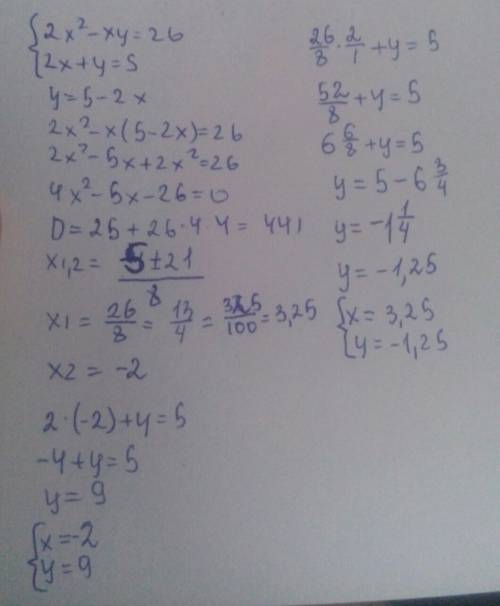 {2x²-xy=26
{2x+y=5
y=5-2x
2x²-x(5-2x)=26
2x²-5x+2x²=26
4x²-5x-26=0
D=25+26·4·4=441
x1,2 = (5±21)/8
x1 = 26/8 = 13/4 = 325/100 = 3,25
x2 = -2
2·(-2)+y=5
-4+y=5
y=9
{x=-2
{y=9
26/8 · 2/1 +y=5
52/8 +y=5
6 6/8 +y=5
y=5-6 3/4
y=-1 1/4
y=-1,25
{x=3,25
{y=-1,25